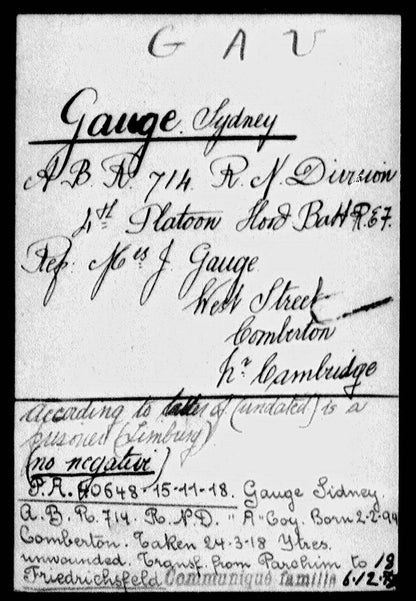 G A U
Gauge. Sydney
A. B. R. 714. R. N. Division
4th Platoon Hood Batt R.E.F.
Ref. Mrs J. Gauge
West Street
Comberton
Nr Cambridge
according to letter of (undated) is a
prisoner (Limburg)
(no negativ)
P.A. 40648-15-11-18. Gauge Sidney.
A.B. R. 714. R.N.D. "A" Coy. Born 2-2-99
Comberton. Taken 24-3-18 Ytres.
unwounded. Transf. from Parchim to
Friedrichsfeld Communiqué famille 6.12.18